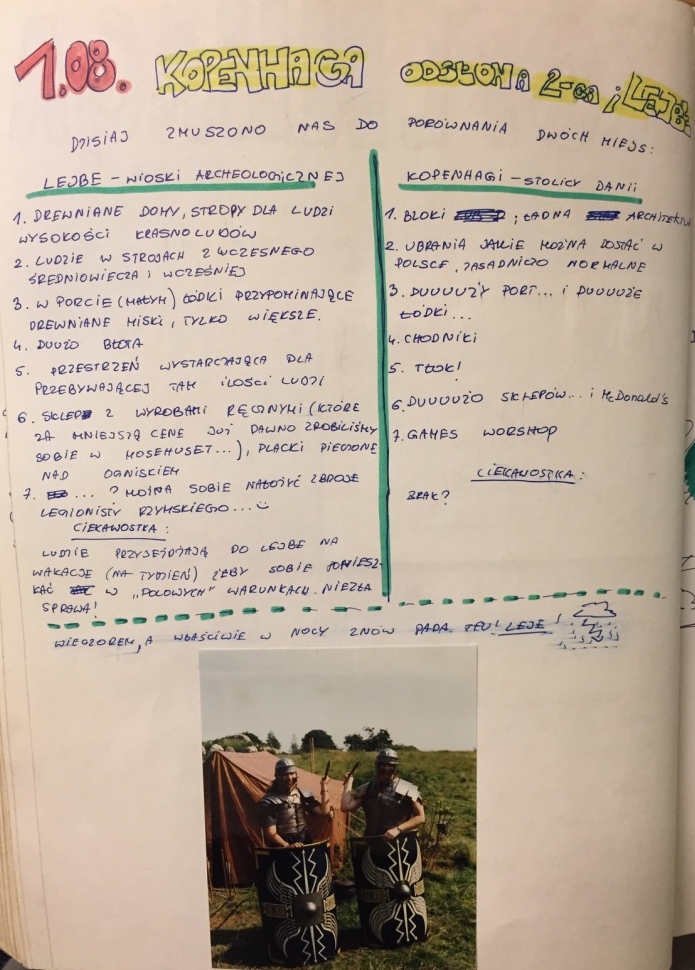 1.08. KOPENHAGA ODSŁONA 2-GA i LEJBE
DZISIAJ ZMUSZONO NAS DO PORÓWNANIA DWÓCH MIEJSC:
LEJBE – WIOSKI ARCHEOLOGICZNEJ
1. DREWNIANE DOMY, STROPY DLA LUDZI
WYSOKOŚCI KRASNOLUDÓW
2. LUDZIE W STROJACH Z WCZESNEGO
ŚREDNIOWIECZA I WCZEŚNIEJ
3. W PORCIE (MAŁYM) ŁÓDKI PRZYPOMINAJĄCE
DREWNIANE MISKI, TYLKO WIĘKSZE.
4. DUUŻO BŁOTA
5. PRZESTRZEŃ WYSTARCZAJĄCA DLA
PRZEBYWAJĄCEJ TAM ILOŚCI LUDZI
6. SKLEP Z WYROBAMI RĘCZNYMI (KTÓRE
ZA MNIEJSZĄ CENĘ JUŻ DAWNO ZROBILIŚMY
SOBIE W MOSEHUSET...), PLACKI PIECZONE
NAD OGNISKIEM
7. ... ? MOŻNA SOBIE NAŁOŻYĆ ZBROJE
LEGIONISTY RZYMSKIEGO... ☺
CIEKAWOSTKA:
LUDZIE PRZYJEŻDŻAJĄ DO LEJBE NA
WAKACJE (NA TYDZIEŃ) ŻEBY SOBIE POMIESZ-
KAĆ W „POLOWYCH" WARUNKACH. NIEZŁA
SPRAWA!
KOPENHAGI – STOLICY DANII
1. BLOKI ; ŁADNA ARCHITEKTURA
2. UBRANIA JAKIE MOŻNA DOSTAĆ W
POLSCE, ZASADNICZO NORMALNE
3. DUUUUŻY PORT... I DUUUUŻE
ŁÓDKI...
4. CHODNIKI
5. TŁOK!
6. DUUUUŻO SKLEPÓW... i McDonald's
7. GAMES WORSHOP
CIEKAWOSTKA:
BRAK?
WIECZOREM, A WŁAŚCIWIE W NOCY ZNÓW PADA. LEJE!